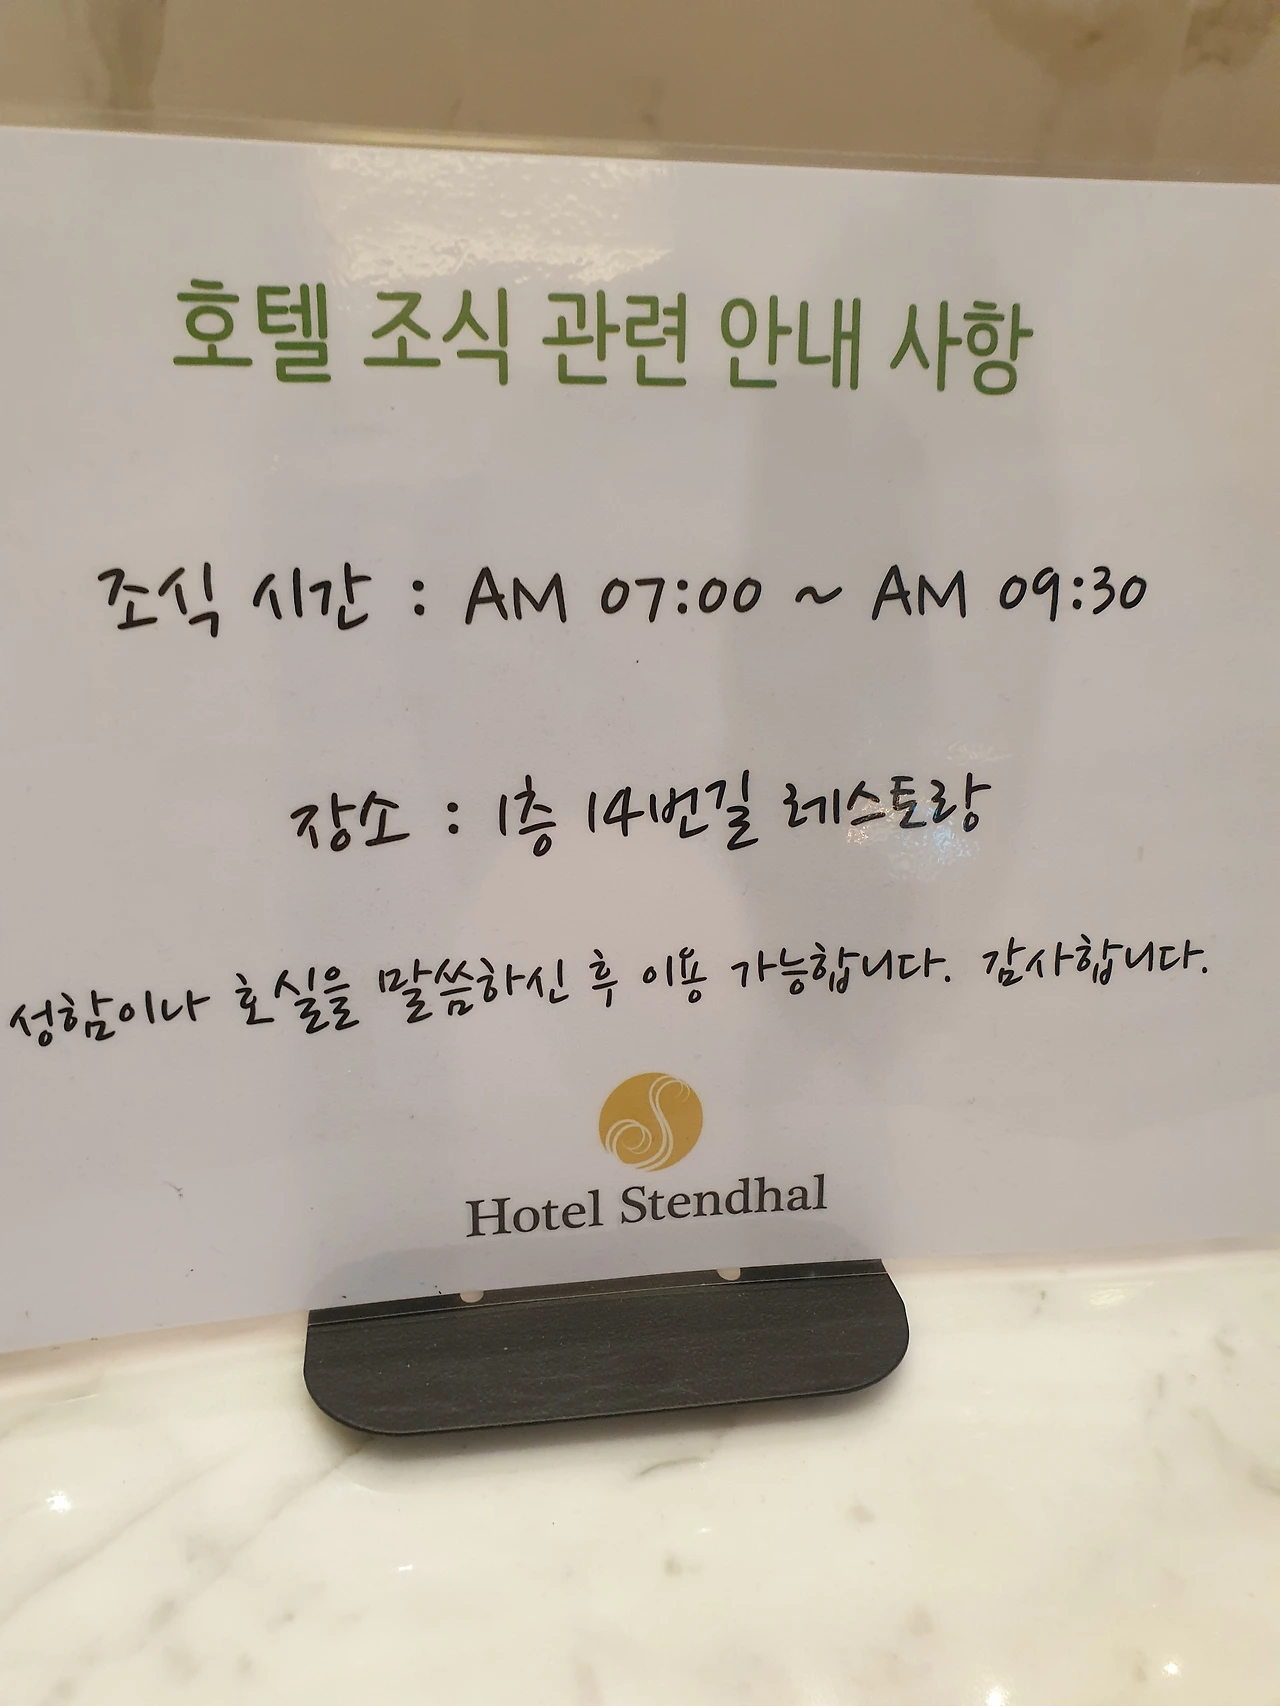 호텔 조식 관련 안내 사항
조식 시간 : AM 07:00 ~ AM 09:30
장소 : 1층 14번길 레스토랑
성함이나 호실을 말씀하신 후 이용 가능합니다. 감사합니다.
Hotel Stendhal